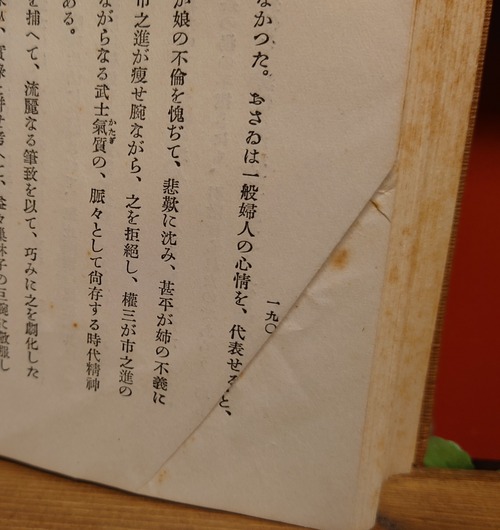 一九〇
なかつた。おさゐは一般婦人の心情を、代表せると、
が娘の不倫を愧ぢて、悲歎に沈み、甚平が姉の不義に
市之進が痩せ腕ながら、之を拒絶し、權三が市之進の
ながらなる武士氣質の、脈々として尙存する時代精神
かたぎ
ある。
を捕へて、流麗なる筆致を以て、巧みに之を劇化した
考へて、益々巣林子の巨腕に敬服し